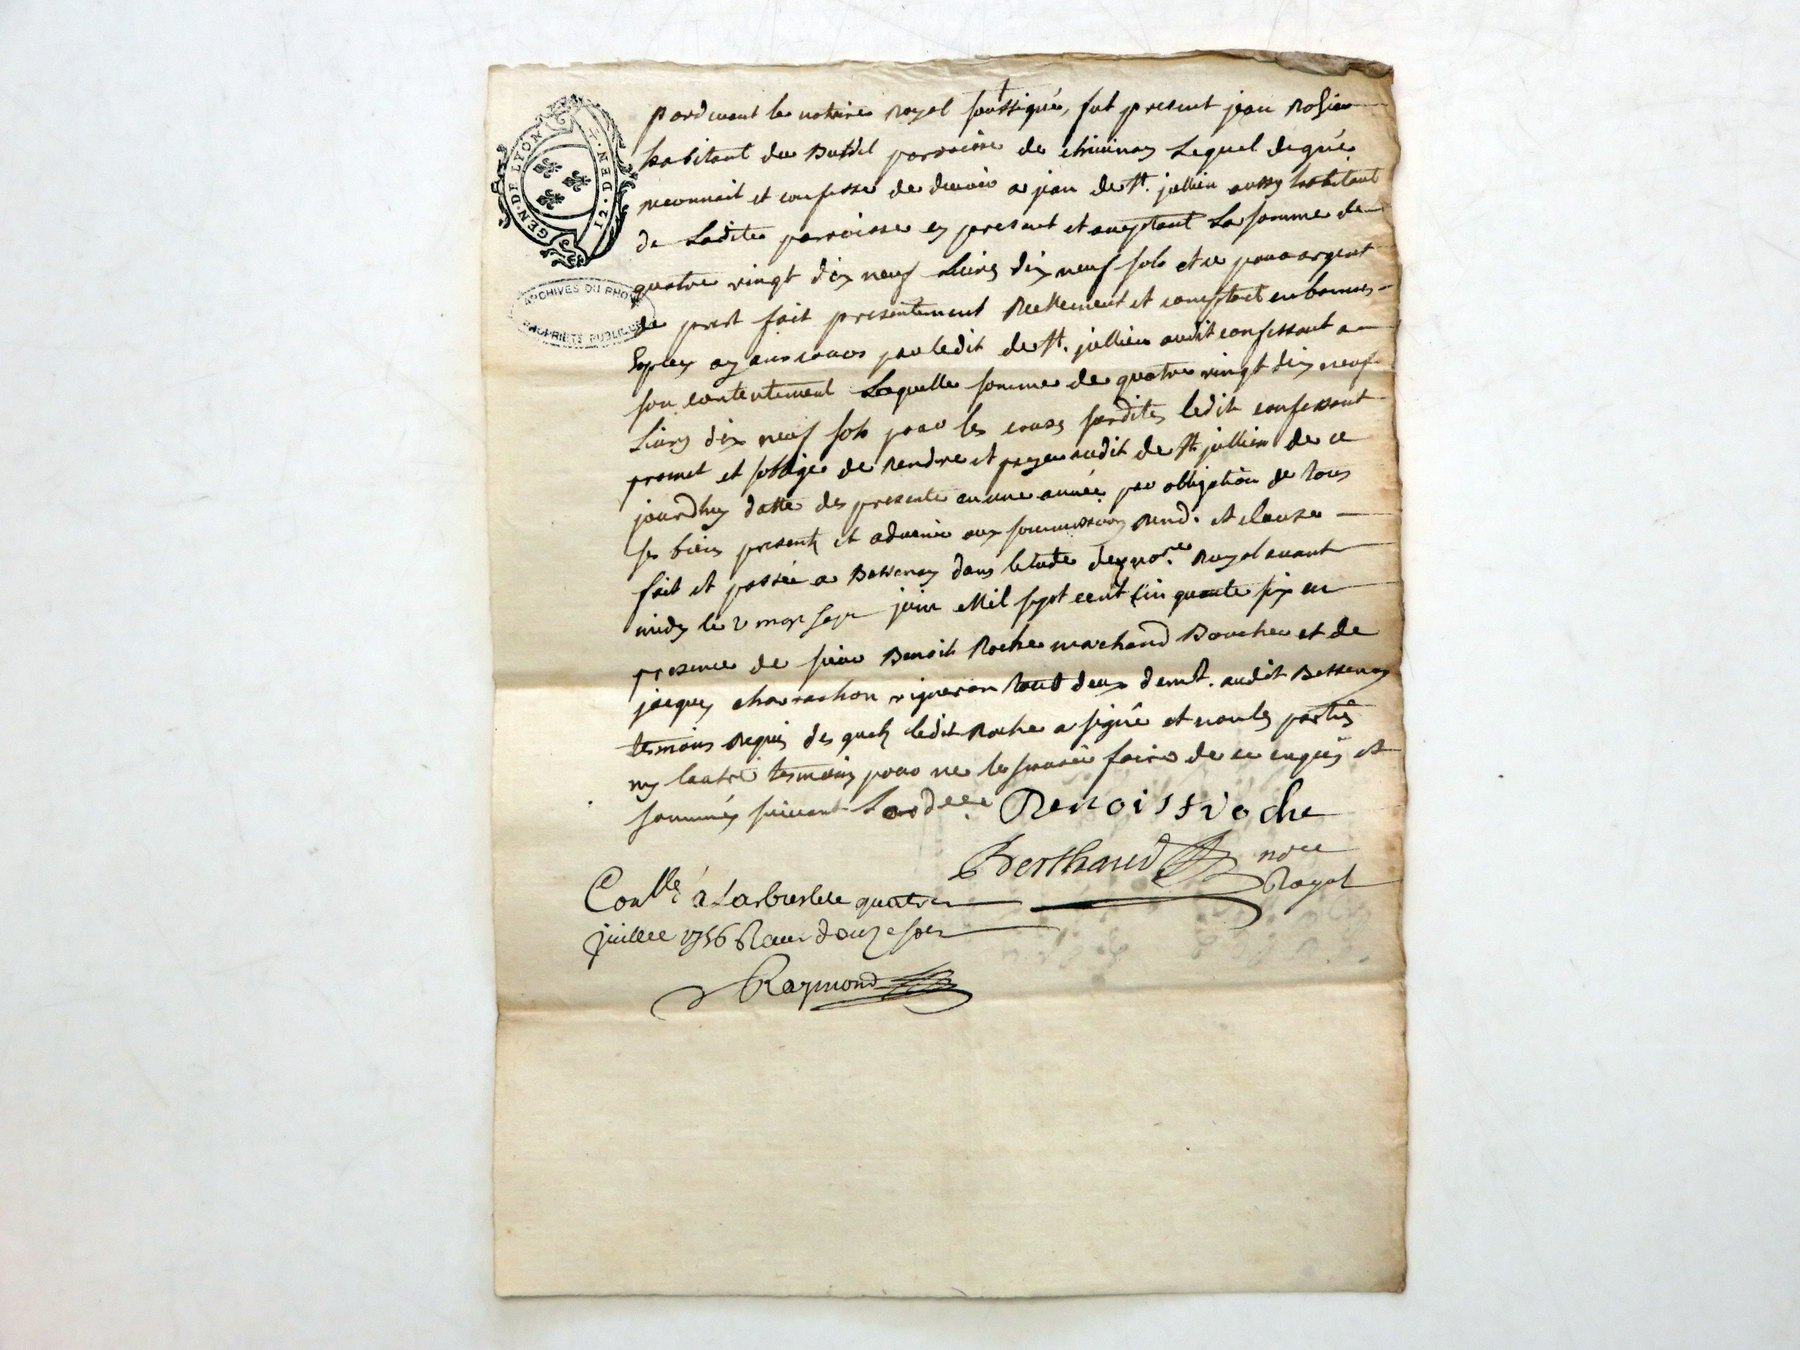 GEN. DE LYON
12. DEN.
ARCHIVES DU RHONE
PROPRIETE PUBLIQUE
pardevant le notaire royal soussigné, fut present jean
habitant du parroisse de Lequel de gré
reconnait et confesse de devoir a jean de st. jullien aussy habitant
de Ladite parroisse cy present et acceptant La somme de
quatre vingt dix neuf Livres dix neuf sols et ce pour argent
de prest fait presentement Reellement et comptant en bonnes
Especes ayans cours par ledit de st. jullien audit confessant a
son contentement Laquelle somme de quatre vingt dix neuf
Livres dix neuf sols pour les causes susdites ledit confessant
promet et soblige de rendre et payer audit de st jullien de ce
jourdhuy datte des presente en une année par obligation de tous
ses biens presents et advenir aux soumissions Rend. et clause
fait et passée a Bessenay dans letude dey nore. Royal avant
midy le juin Mil sept cent cinquante six en
presence de sieur Benoit Roche marchand Boucher et de
jacques charrachon vigneron tout deux demt. audit Bessenay
tesmoins requis des quels ledit Roche a signé et non les parties
ny lautre tesmoin pour ne le savoir faire de ce enquis et
sommés suivant Lord.ce. Benoist roche
Berthaud nore
Royal
Conlle. à Larbresle quatre
juillet 1756 Recu douze sols
Raymond